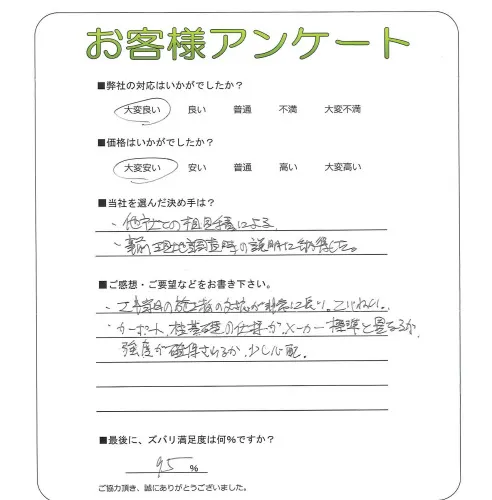 お客様アンケート
■弊社の対応はいかがでしたか？
大変良い 良い 普通 不満 大変不満
■価格はいかがでしたか？
大変安い 安い 普通 高い 大変高い
■当社を選んだ決め手は？
・他社との相見積による
・事前現地調査時の説明に納得した。
■ご感想・ご要望などをお書き下さい。
・工事当日の施工者の対応が非常に良い。ていねい。
・カーポート、柱基礎の仕様が、メーカー標準と異なるが、
強度が確保されるか、少し心配。
■最後に、ズバリ満足度は何%ですか？
95 %
ご協力頂き、誠にありがとうございました。